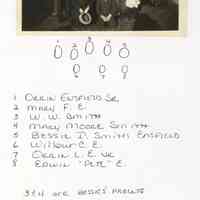 1 2 3 4 5
6 7 8
1 ORRIN ENSFIELD SR.
2 MARY F. E.
3 W. W. SMITH
4 MARY MOORE SMITH
5 BESSIE D. SMITH ENSFIELD
6 WILBUR C. E.
7 ORRIN L. E. JR
8 EDWIN "PETE" E.
3 & 4 ARE BESSIE'S PARENTS